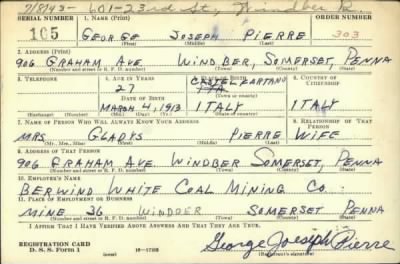 7/8/43- 601-23rd St, Windber Pa.
SERIAL NUMBER 1. NAME (Print) ORDER NUMBER
105 GEORGE JOSEPH PIERRE 303
(First) (Middle) (Last)
2. ADDRESS (Print)
906 GRAHAM AVE. WINDBER, SOMERSET, PENNA
(Number and street or R. F. D. number) (Town) (County) (State)
3. TELEPHONE 4. AGE IN YEARS 5. PLACE OF BIRTH 6. COUNTRY OF CITIZENSHIP
27 CASTELFORTANO
DATE OF BIRTH (Town or county)
MARCH 4, 1913 ITALY ITALY
(Exchange) (Number) (Mo.) (Day) (Yr.) (State or country)
7. NAME OF PERSON WHO WILL ALWAYS KNOW YOUR ADDRESS 8. RELATIONSHIP OF THAT PERSON
MRS GLADYS PIERRE WIFE
(Mr., Mrs., Miss) (First) (Middle) (Last)
9. ADDRESS OF THAT PERSON
906 GRAHAM AVE. WINDBER SOMERSET, PENNA
(Number and street or R. F. D. number) (Town) (County) (State)
10. EMPLOYER'S NAME
BERWIND WHITE COAL MINING CO.
11. PLACE OF EMPLOYMENT OR BUSINESS
MINE 36 WINDBER SOMERSET PENNA
(Number and street or R. F. D. number) (Town) (County) (State)
I AFFIRM THAT I HAVE VERIFIED ABOVE ANSWERS AND THAT THEY ARE TRUE.
REGISTRATION CARD
D. S. S. Form 1 (over) 16-17105 George Joseph Pierre
(Registrant's signature)